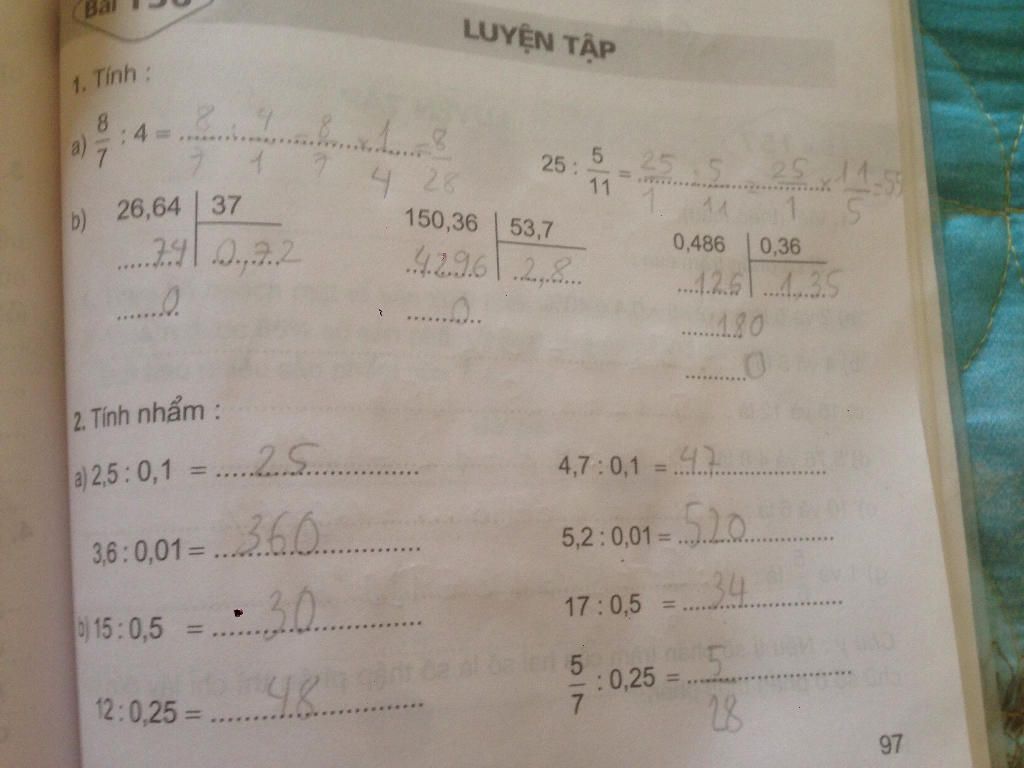 Bài
LUYỆN TẬP
1. Tính :
a) 8/7 : 4 = 8/7 : 4/1 = 8/7 × 1/4 = 8/28
25 : 5/11 = 25/1 : 5/11 = 25/1 × 11/5 = 55
b) 26,64 37
74 0,72
0
150,36 53,7
4296 2,8
0
0,486 0,36
126 1,35
180
0
2. Tính nhẩm :
a) 2,5 : 0,1 = 25
4,7 : 0,1 = 47
3,6 : 0,01 = 360
5,2 : 0,01 = 520
b) 15 : 0,5 = 30
17 : 0,5 = 34
12 : 0,25 = 48
5/7 : 0,25 = 5/28
97